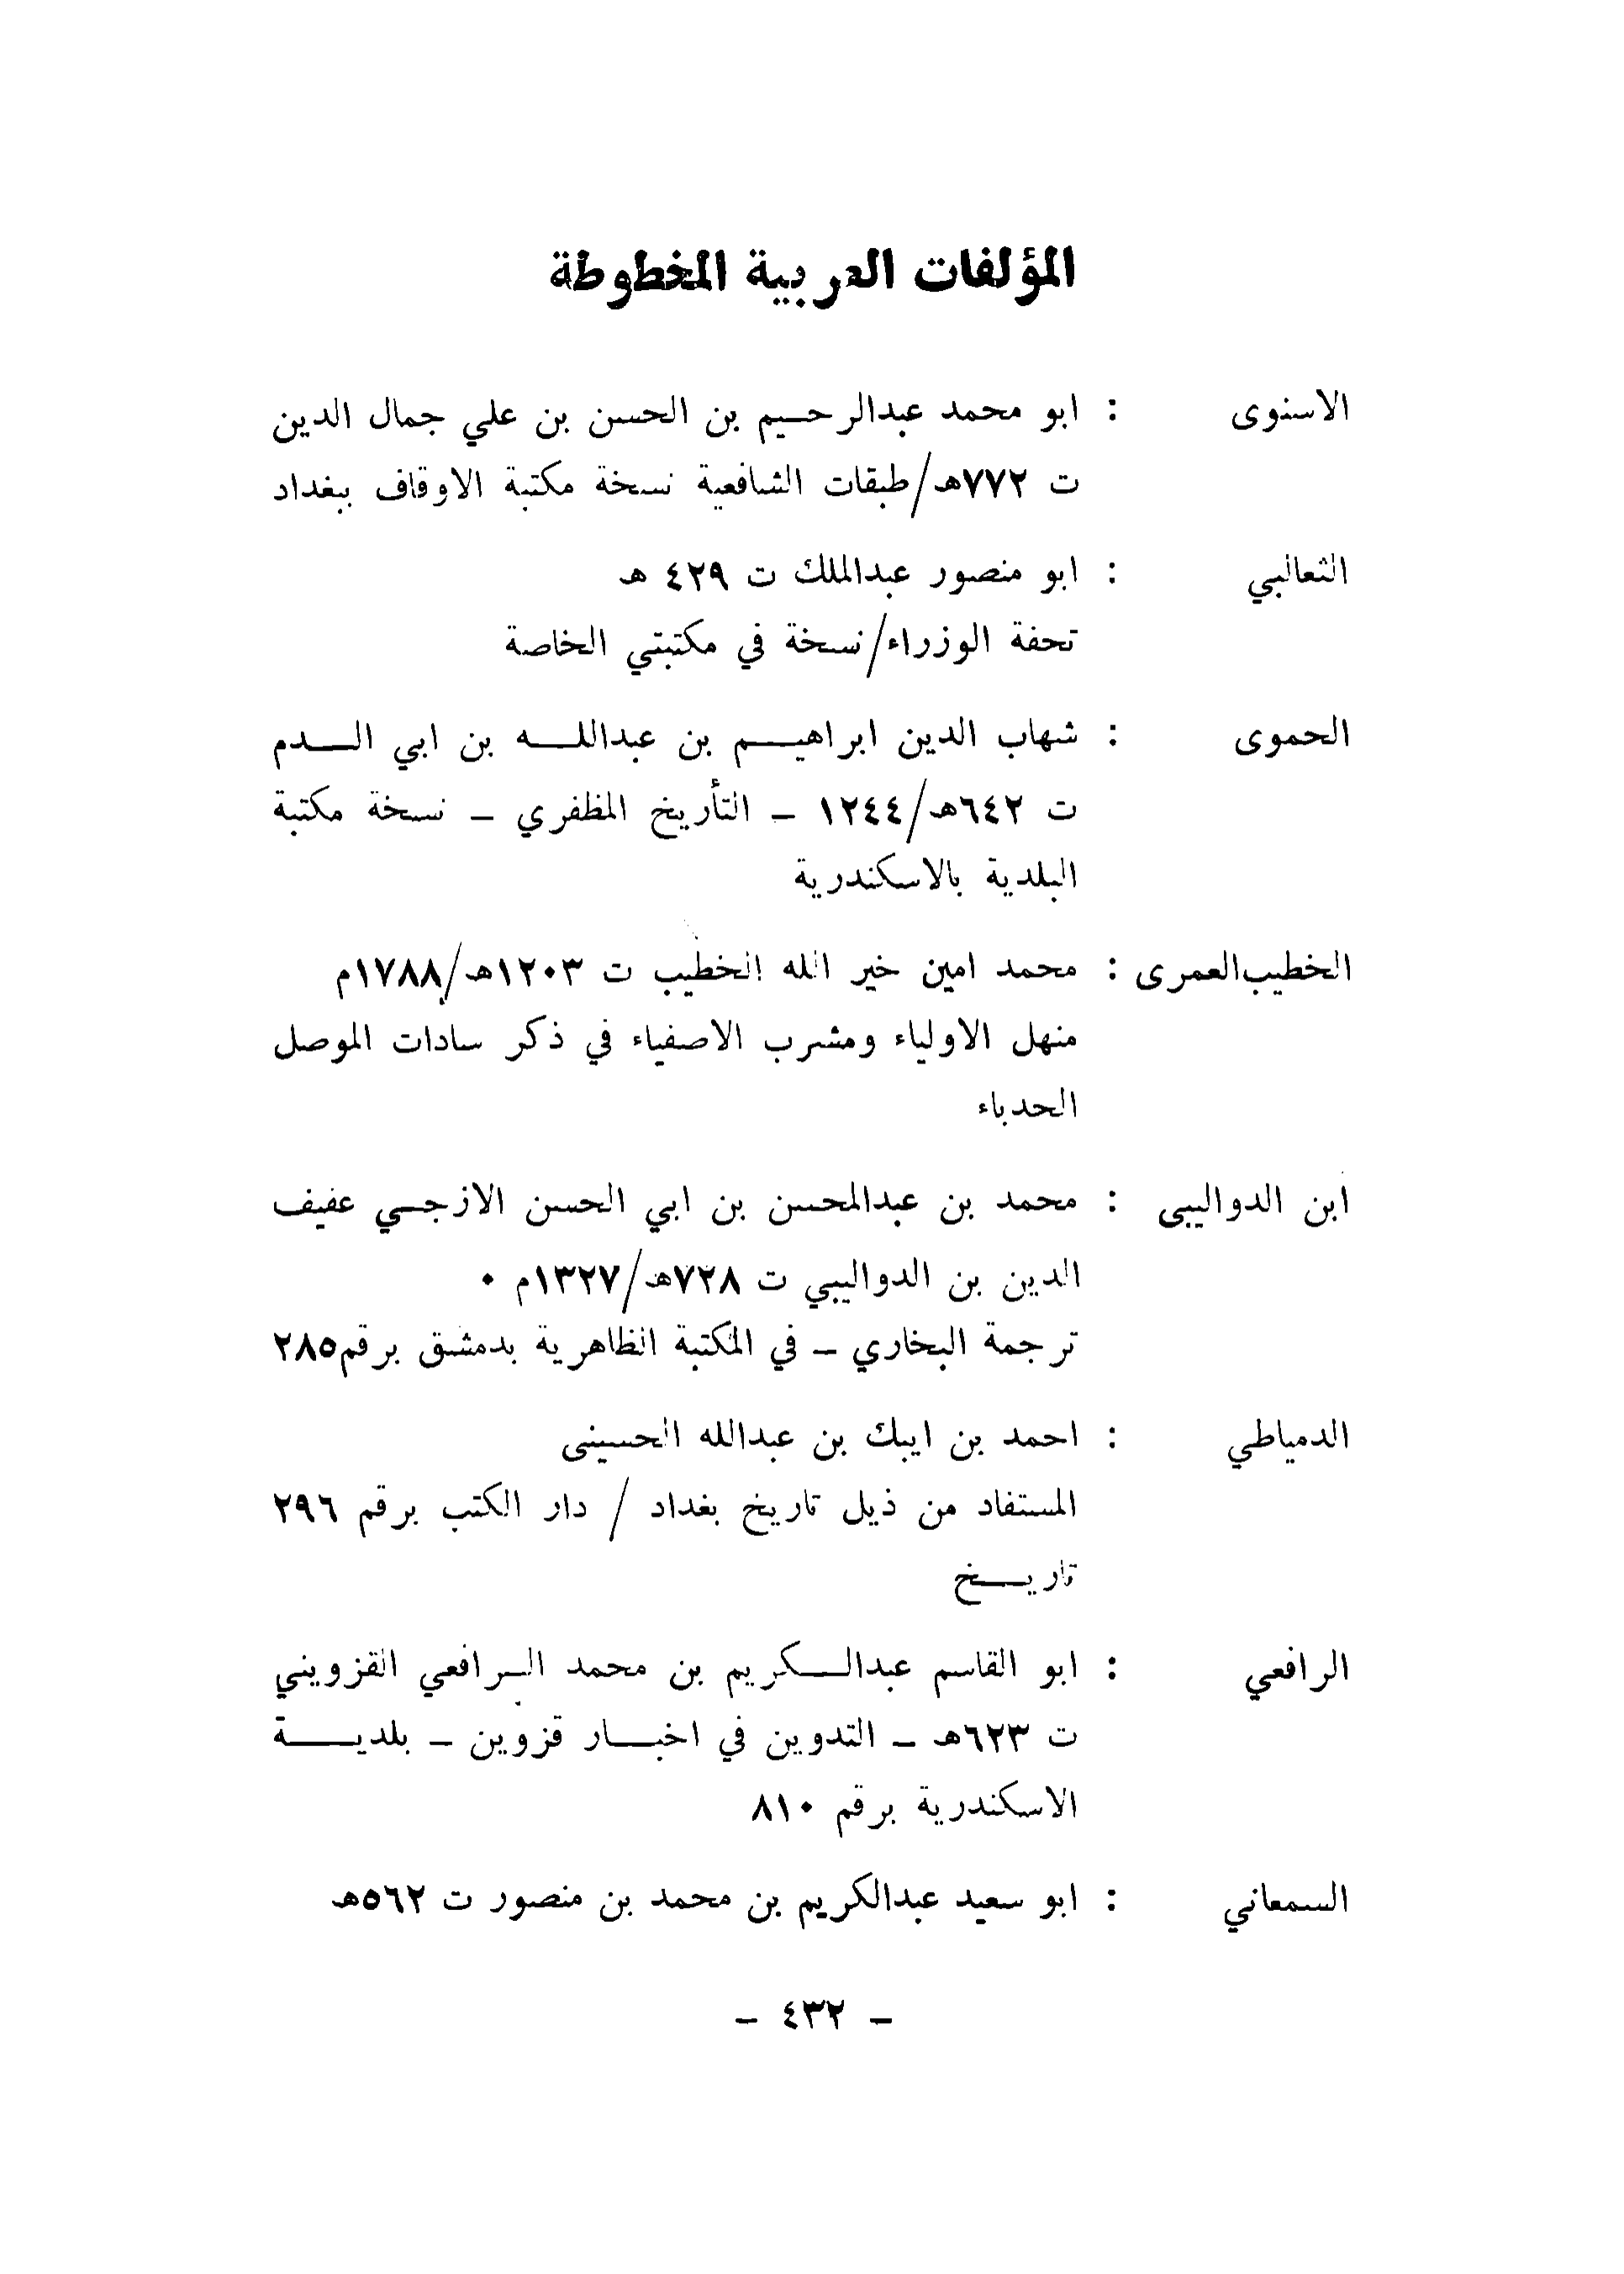 المؤلفات العربية المخطوطة
الاسنوى : ابو محمد عبدالرحيم بن الحسن بن علي جمال الدين
ت ٧٧٢هـ/طبقات الشافعية نسخة مكتبة الاوقاف ببغداد
الثعالبي : ابو منصور عبدالملك ت ٤٢٩ هـ
تحفة الوزراء/نسخة في مكتبتي الخاصة
الحموى : شهاب الدين ابراهيم بن عبدالله بن ابي الدم
ت ٦٤٢هـ/١٢٤٤ – التأريخ المظفري – نسخة مكتبة
البلدية بالاسكندرية
الخطيب العمرى : محمد امين خير الله الخطيب ت ١٢٠٣هـ/١٧٨٨م
منهل الاولياء ومشرب الاصفياء في ذكر سادات الموصل
الحدباء
ابن الدواليبى : محمد بن عبدالمحسن بن ابي الحسن الازجي عفيف
الدين بن الدواليبي ت ٧٢٨هـ/١٣٢٧م ٠
ترجمة البخاري – في المكتبة الظاهرية بدمشق برقم٢٨٥
الدمياطي : احمد بن ايبك بن عبدالله الحسينى
المستفاد من ذيل تاريخ بغداد / دار الكتب برقم ٢٩٦
تاريخ
الرافعي : ابو القاسم عبدالكريم بن محمد الرافعي القزويني
ت ٦٢٣هـ – التدوين في اخبار قزوين – بلدية
الاسكندرية برقم ٨١٠
السمعاني : ابو سعيد عبدالكريم بن محمد بن منصور ت ٥٦٢هـ
– ٤٣٢ –